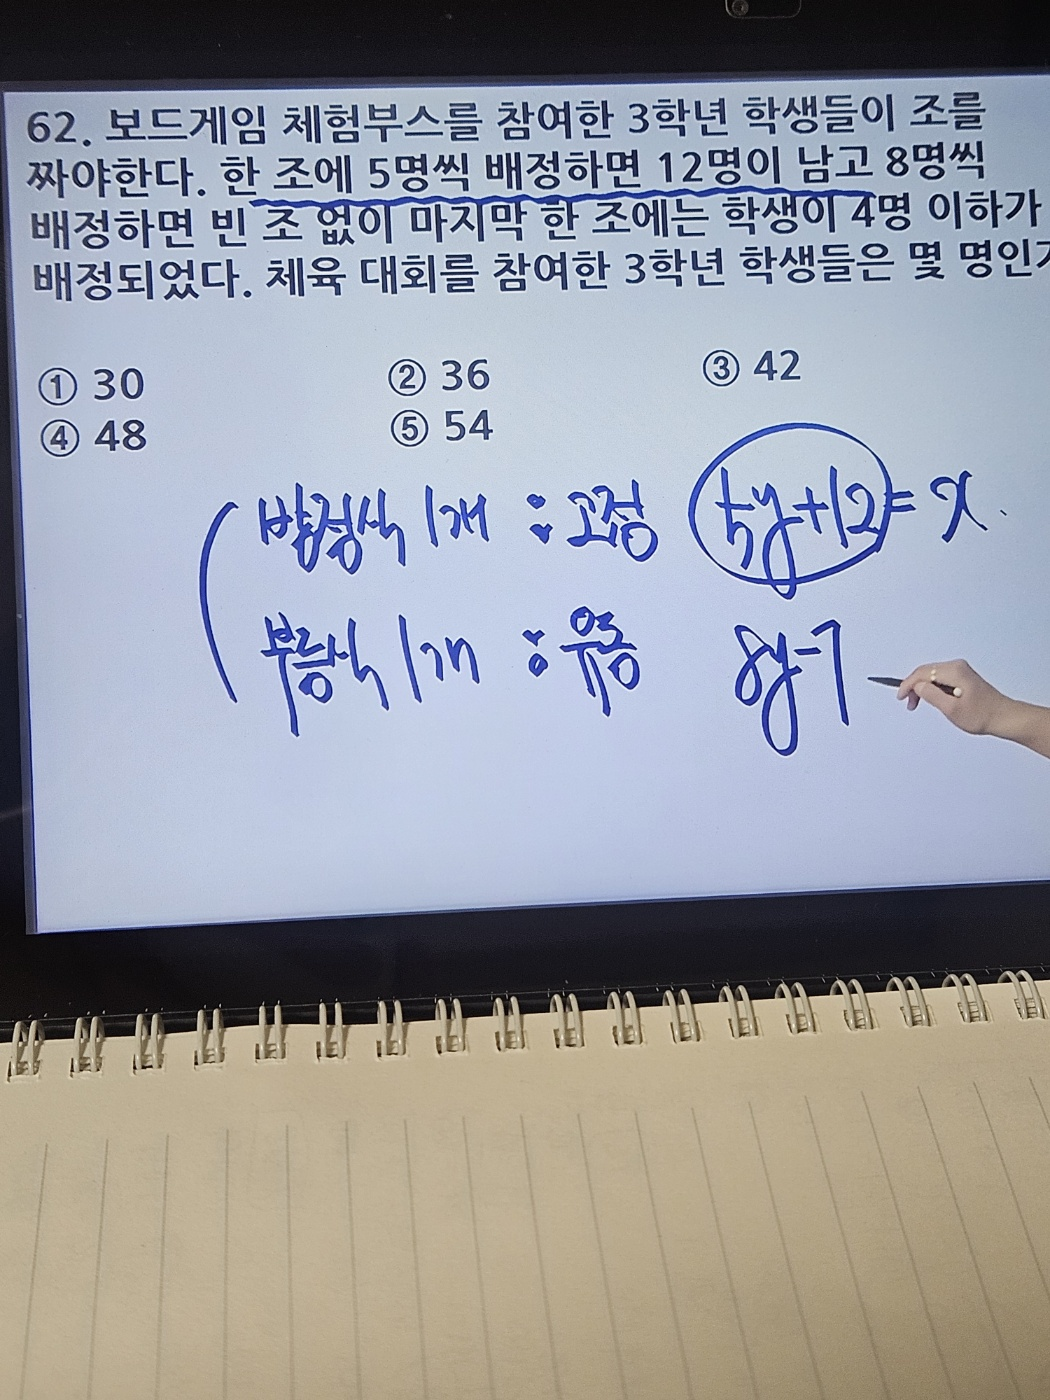 62. 보드게임 체험부스를 참여한 3학년 학생들이 조를
짜야한다. 한 조에 5명씩 배정하면 12명이 남고 8명씩
배정하면 빈 조 없이 마지막 한 조에는 학생이 4명 이하가
배정되었다. 체육 대회를 참여한 3학년 학생들은 몇 명인가
① 30 ② 36 ③ 42
④ 48 ⑤ 54
방정식 1개 : 고정 5y+12 = x.
부등식 1개 : 유동 8y-7